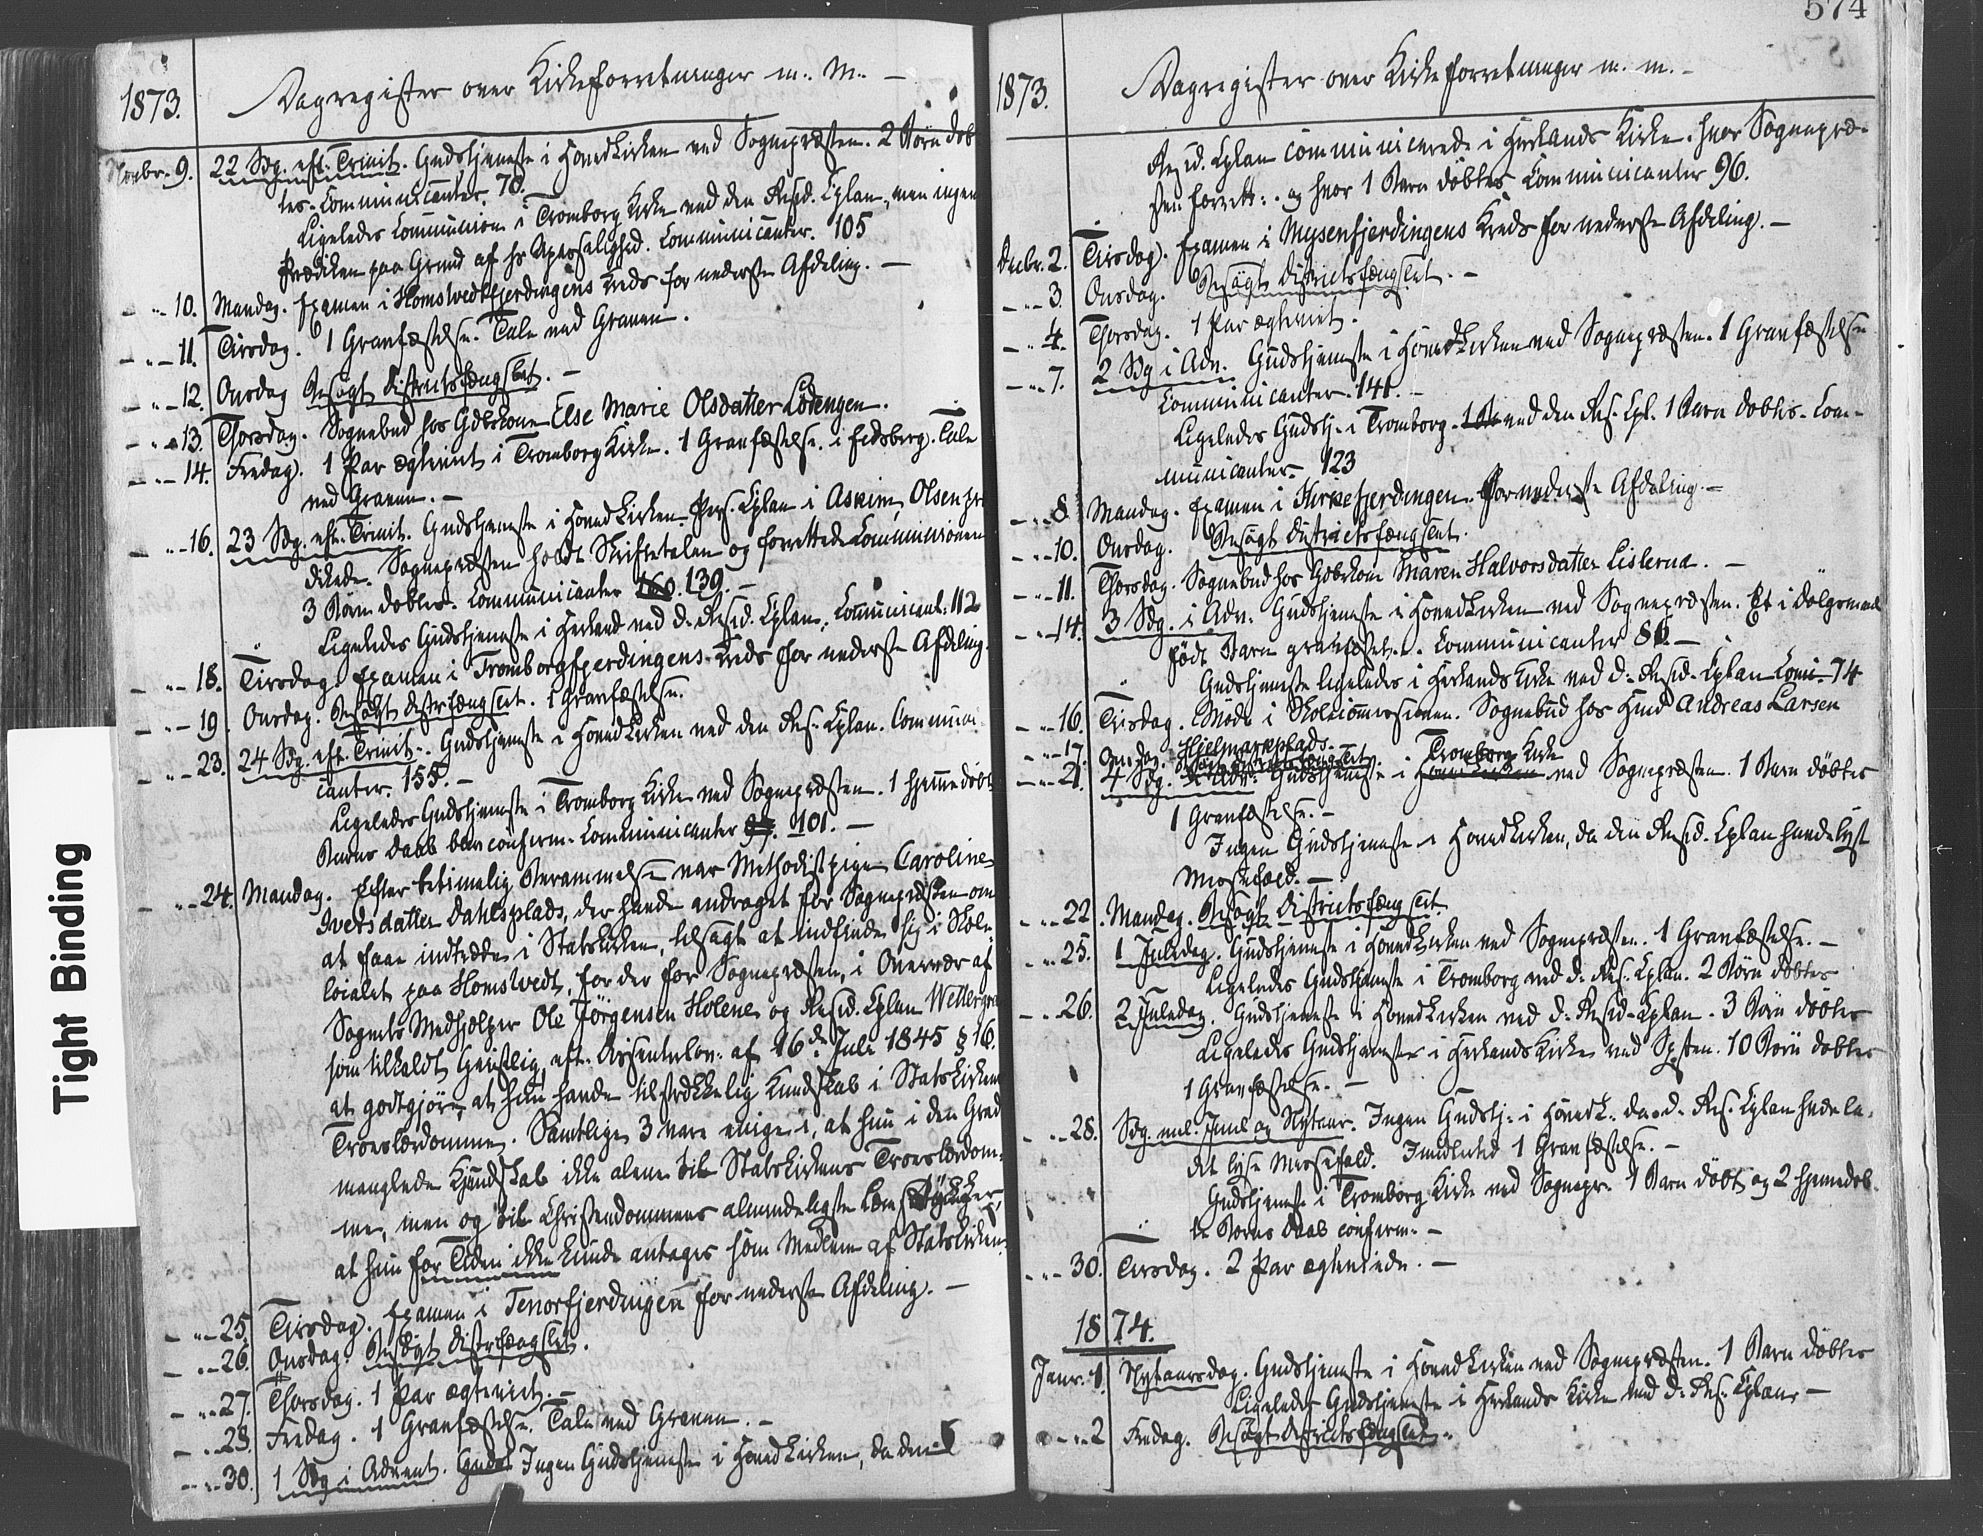 1873.
Dagregister over Kirkeforretninger m. M. –
Novbr. 9. 22 Sdg. eft. Trinit. Gudstjeneste i Hovedkirken ved Sognepræsten. 2 Børn døb
tes. Communicanter. 70.
Ligeledes Communion i Tromborg Kirke ved den Resid. Cplan, men ingen
Prædiken paa Grund af hs Upasselighed. Communicanter. 105
– " – 10. Mandag. Examen i Homstvedtfjerdingens Kreds for nederste Afdeling. –
– " – 11. Tirsdag. 1 Gravfæstelse. Tale ved Graven.
– " – 12. Onsdag Besøgt Districtsfængslet. –
– " – 13. Thorsdag. Sognebud hos Gdbrkone Else Marie Olsdatter Lövengen.
– " – 14. Fredag. 1 Par ægteviet i Tromborg Kirke. 1 Gravfæstelse i Eidsberg. Tale
ved Graven. –
– " – 16. 23 Sdg. eft. Trinit. Gudstjeneste i Hovedkirken. Pers. Cplan i Askim, Olsen præ
dikede. Sognepræsten holdt Skriftetalen og forrettede Communionen
3 Børn døbtes. Communicanter 160. 139. –
Ligeledes Gudstjeneste i Herland ved d. Resid. Cplan. Communicant. 112
– " – 18. Tirsdag. Examen i Tromborgfjerdingens Kreds for nederste Afdeling.
– " – 19. Onsdag. Besøgt Distrfængslet. 1 Gravfæstelse.
– " – 23. 24 Sdg. eft. Trinit. Gudstjeneste i Hovedkirken ved den Res. Cplan. Communi-
canter. 155. –
Ligeledes Gudstjeneste i Tromborg Kirke ved Sognepræsten. 1 hjemmedøbt
Barns Daab blev conferm. Communicanter 101. –
– " – 24. Mandag. Efter betimelig Berammelse var Methodistpigen Caroline
Iversdatter Dahlsplads, der havde andraget for Sognepræsten om
at faae indtræde i Statskirken, tilsagt at indfinde sig i Skole-
localet paa Homstvedt, for der for Sognepræsten, i Overvær af
Sognets Medhjælper Ole Jörgensen Holene og Resid. Cplan Wettergre
som tilkaldt Geistlig, eft. Dissenterlov. af 16de Juli 1845 § 16.
at godtgjøre, at hun havde tilstrækkelig Kundskab i Statskirkens
Troeslærdomme. Samtlige 3 vare enige i, at hun i den Grad
manglede Kundskab ikke alene til Statskirkens Troeslærdom-
me, men og til Christendommens almindeligste Lærestykker,
at hun for Tiden ikke kunde antages som Medlem af Statskirken.
– " – 25. Tirsdag. Examen i Tenorfjerdingen for nederste Afdeling. –
– " – 26. Onsdag. Besøgt Distrfængslet.
– " – 27. Thorsdag. 1 Par ægteviet. –
– " – 28. Fredag. 1 Gravfæstelse. Tale ved Graven. –
– " – 30. 1 Sdg i Advent. Guds Ingen Gudstjeneste i Hovedkirken, da den
574
1873.
Dagregister over Kirkeforretninger m. m. –
Resid. Cplan communicerede i Herlands Kirke, hvor Sognepræ-
sten forrett. og hvor 1 Barn døbtes. Communicanter 96.
Decbr. 2. Tirsdag. Examen i Mysenfjerdingens Kreds for nederste Afdeling. –
– " – 3. Onsdag. Besøgt Districtsfængslet. –
– " – 4. Thorsdag. 1 Par ægteviet.
– " – 7. 2 Sdg i Adv. Gudstjeneste i Hovedkirken ved Sognepræsten. 1 Gravfæstelse
Communicanter. 141. –
Ligeledes Gudstj. i Tromborg 1 Ba ved den Res. Cpl. 1 Barn døbtes. Com-
municanter. 123
– " – 8 Mandag. Examen i Kirkefjerdingen for nederste Afdeling. –
– " – 10. Onsdag. Besøgt Districtsfængslet.
– " – 11. Thorsdag. Sognebud hos Gdbrkone Maren Halvorsdatter Lislerud. –
– " – 14. 3 Sdg. i Adv. Gudstjeneste i Hovedkirken ved Sognepræsten. Et i Dølgsmaal
født Barn gravfæstet. Communicanter 86. –
Gudstjeneste ligeledes i Herlands Kirke ved d. Resid. Cplan Comm. 74
– " – 16. Tirsdag. Møde i Skolecommissionen. Sognebud hos Hmd Andreas Larsen
Hjelmarkplads.
– " – 17. Onsdag. Besøgt Districtsfængslet
– " – 21. 4 Sdg. i Adv. Gudstjeneste i Hovedkirken Tromborg Kirke ved Sognepræsten. 1 Barn døbtes
1 Gravfæstelse. –
Ingen Gudstjeneste i Hovedkirken, da den Resid. Cplan havde lyst
Messefald. –
– " – 22. Mandag. Besøgt Districtsfængslet.
– " – 25. 1 Juledag. Gudstjeneste i Hovedkirken ved Sognepræsten. 1 Gravfæstelse. –
Ligeledes Gudstjeneste i Tromborg ved d. Res. Cplan. 2 Børn døbtes
– " – 26. 2 Juledag. Gudstjeneste i Hovedkirken ved d. Resid. Cplan. 3 Børn døbtes
Ligeledes Gudstjeneste i Herlands Kirke ved Sgpsten. 10 Børn døbtes
1 Gravfæstelse. –
– " – 28. Sdg. mel. Juul og Nytaar. Ingen Gudstj. i Hovedk. da d. Res. Cplan havde la-
det lyse Messefald. Imidlertid 1 Gravfæstelse. –
Gudstjeneste i Tromborg Kirke ved Sognepr. 1 Barn døbt og 2 hjemmedøb-
te Børns Daab conferm. –
– " – 30. Tirsdag. 2 Par ægteviede. –
1874.
Janr. 1. Nytaarsdag. Gudstjeneste i Hovedkirken ved Sognepræsten. 1 Barn døbtes
Ligeledes Gudstjeneste i Herlands Kirke ved d. Res. Cplan. –
– " – 2 Fredag. Besøgt Districtsfængslet.
Tight Binding